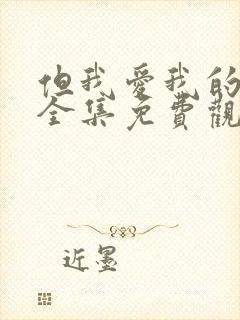 但我愛我的
全集免費觀
近墨